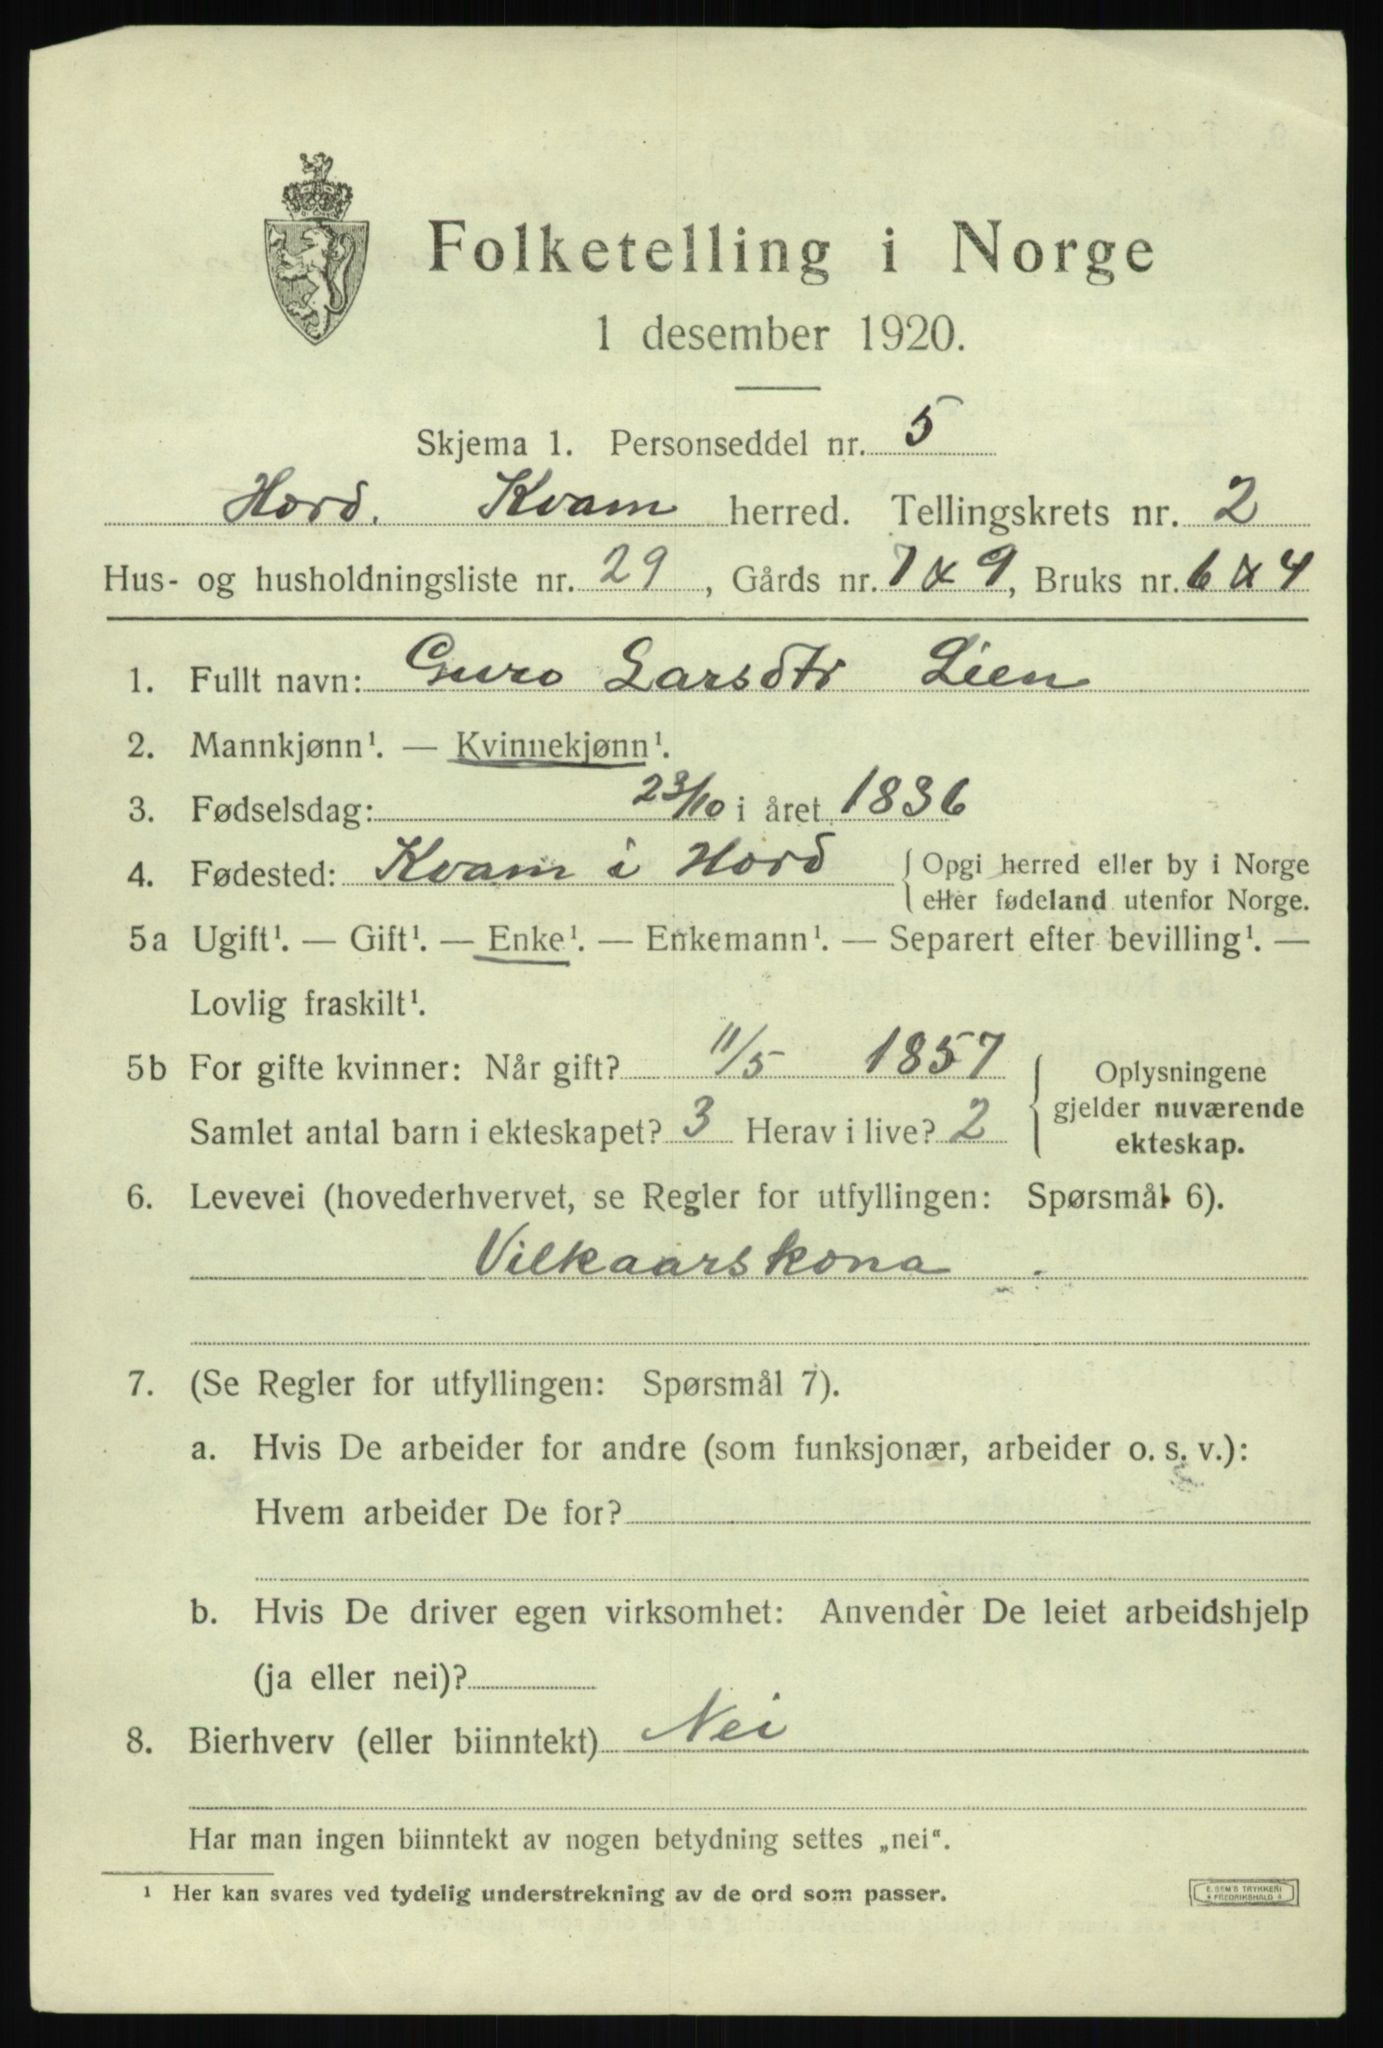 Folketelling i Norge
1 desember 1920.
Skjema 1. Personseddel nr. 5
Hord. Kvam herred. Tellingskrets nr. 2
Hus- og husholdningsliste nr. 29, Gårds nr. 7 & 9, Bruks nr. 6 & 4
1. Fullt navn: Guro Larsdtr Lien
2. Mannkjønn¹. — Kvinnekjønn¹.
3. Fødselsdag: 23/10 i året 1836
4. Fødested: Kvam i Hord { Opgi herred eller by i Norge
eller fødeland utenfor Norge.
5a Ugift¹. — Gift¹. — Enke¹. — Enkemann¹. — Separert efter bevilling¹. —
Lovlig fraskilt¹.
5b For gifte kvinner: Når gift? 11/5 1857
Samlet antal barn i ekteskapet? 3 Herav i live? 2
Oplysningene
gjelder nuværende
ekteskap.
6. Levevei (hovederhvervet, se Regler for utfyllingen: Spørsmål 6).
Vilkaarskona
7. (Se Regler for utfyllingen: Spørsmål 7).
a. Hvis De arbeider for andre (som funksjonær, arbeider o. s. v.):
Hvem arbeider De for?
b. Hvis De driver egen virksomhet: Anvender De leiet arbeidshjelp
(ja eller nei)?
8. Bierhverv (eller biinntekt) Nei
Har man ingen biinntekt av nogen betydning settes „nei“.
¹ Her kan svares ved tydelig understrekning av de ord som passer.
E. SEM'S TRYKKERI
FREDRIKSHALD